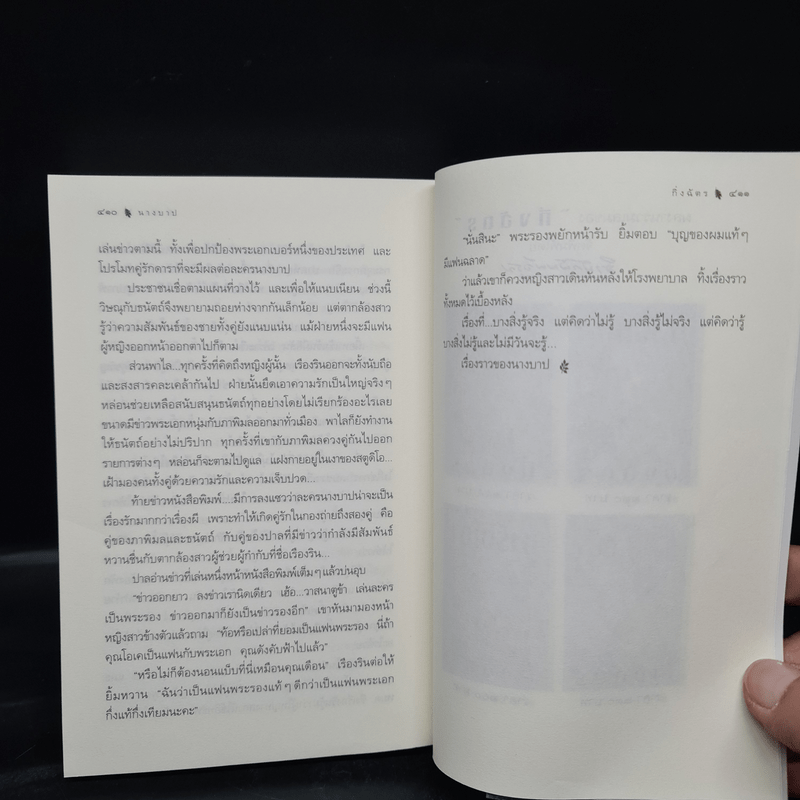 ๔๑๐ นางบาป
เล่นข่าวตามนี้ ทั้งเพื่อปกป้องพระเอกเบอร์หนึ่งของประเทศ และ
โปรโมทคู่รักดาราที่จะมีผลต่อละครนางบาป
ประชาชนเชื่อตามแผนที่วางไว้ และเพื่อให้แนบเนียน ช่วงนี้
วิษณุกับธนัตถ์จึงพยายามถอยห่างจากกันเล็กน้อย แต่ตากล้องสาว
รู้ว่าความสัมพันธ์ของชายทั้งคู่ยังแนบแน่น แม้ฝ่ายหนึ่งจะมีแฟน
ผู้หญิงออกหน้าออกตาไปก็ตาม
ส่วนพาไล...ทุกครั้งที่คิดถึงหญิงผู้นั้น เรืองรินออกจะทั้งนับถือ
และสงสารคละเคล้ากันไป ฝ่ายนั้นยึดเอาความรักเป็นใหญ่จริงๆ
หล่อนช่วยเหลือสนับสนุนธนัตถ์ทุกอย่างโดยไม่เรียกร้องอะไรเลย
ขนาดมีข่าวพระเอกหนุ่มกับภาพิมลออกมาทั่วเมือง พาไลก็ยังทำงาน
ให้ธนัตถ์อย่างไม่ปริปาก ทุกครั้งที่เขากับภาพิมลควงคู่กันไปออก
รายการต่างๆ หล่อนก็จะตามไปดูแล แฝงกายอยู่ในเงาของสตูดิโอ...
เฝ้ามองคนทั้งคู่ด้วยความรักและความเจ็บปวด...
ท้ายข่าวหนังสือพิมพ์...มีการลงแซวว่าละครนางบาปน่าจะเป็น
เรื่องรักมากกว่าเรื่องผี เพราะทำให้เกิดคู่รักในกองถ่ายถึงสองคู่ คือ
คู่ของภาพิมลและธนัตถ์ กับคู่ของปาลที่มีข่าวว่ากำลังมีสัมพันธ์
หวานชื่นกับตากล้องสาวผู้ช่วยผู้กำกับที่ชื่อเรืองริน...
ปาลอ่านข่าวที่เล่นหนึ่งหน้าหนังสือพิมพ์เต็มๆ แล้วบ่นอุบ
"ข่าวออกยาว ลงข่าวเรานิดเดียว เฮ้อ...วาสนาตูข้า เล่นละคร
เป็นพระรอง ข่าวออกมาก็ยังเป็นข่าวรองอีก" เขาหันมามองหน้า
หญิงสาวข้างตัวแล้วถาม "ท้อหรือเปล่าที่ยอมเป็นแฟนพระรอง นี่ถ้า
คุณโอเคเป็นแฟนกับพระเอก คุณดังคับฟ้าไปแล้ว"
"หรือไม่ก็ต้องนอนแบ็บที่นี่เหมือนคุณเดือน" เรืองรินต่อให้
ยิ้มหวาน "ฉันว่าเป็นแฟนพระรองแท้ๆ ดีกว่าเป็นแฟนพระเอก
กึ่งแท้กึ่งเทียมนะคะ"
กิ่งฉัตร ๔๑๑
"นั่นสินะ" พระรองพยักหน้ารับ ยิ้มตอบ "บุญของผมแท้ๆ
มีแฟนฉลาด"
ว่าแล้วเขาก็ควงหญิงสาวเดินหันหลังให้โรงพยาบาล ทิ้งเรื่องราว
ทั้งหมดไว้เบื้องหลัง
เรื่องที่...บางสิ่งรู้จริง แต่คิดว่าไม่รู้ บางสิ่งรู้ไม่จริง แต่คิดว่ารู้
บางสิ่งไม่รู้และไม่มีวันจะรู้...
เรื่องราวของนางบาป